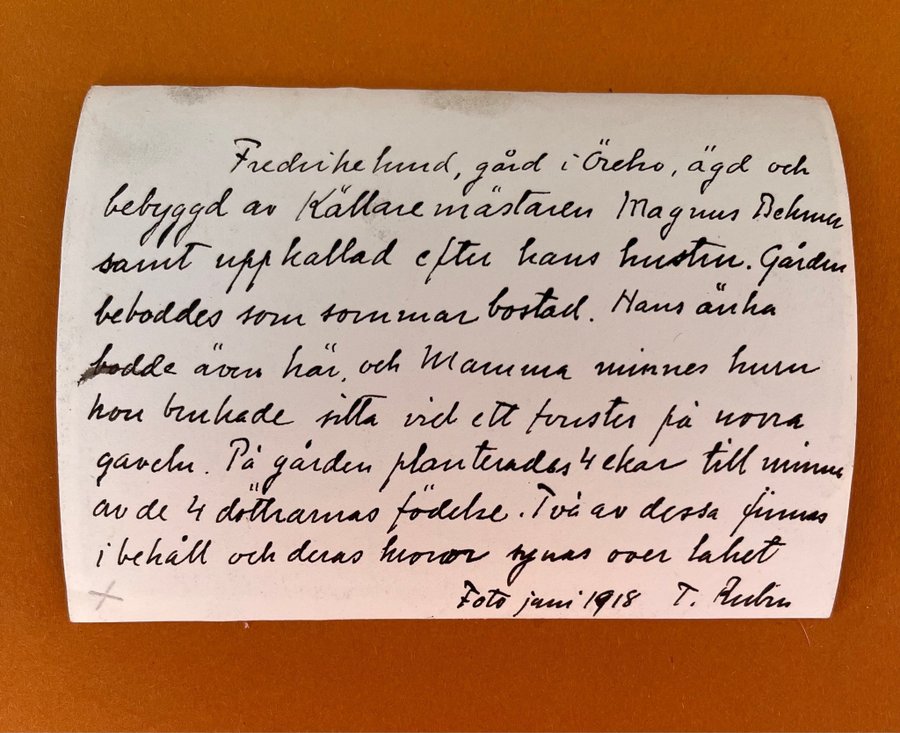 Fredrikelund, gård i Örebro, ägd och
bebyggd av Källaremästaren Magnus
samt uppkallad efter hans hustru. Gården
beboddes som sommarbostad. Hans änka
bodde även här, och Mamma minnes huru
hon brukade sitta vid ett fönster på norra
gaveln. På gården planterades 4 ekar till minne
av de 4 döttrarnas födelse. Två av dessa finnas
i behåll och deras kronor synas over taket
Foto juni 1918 T. Rubin